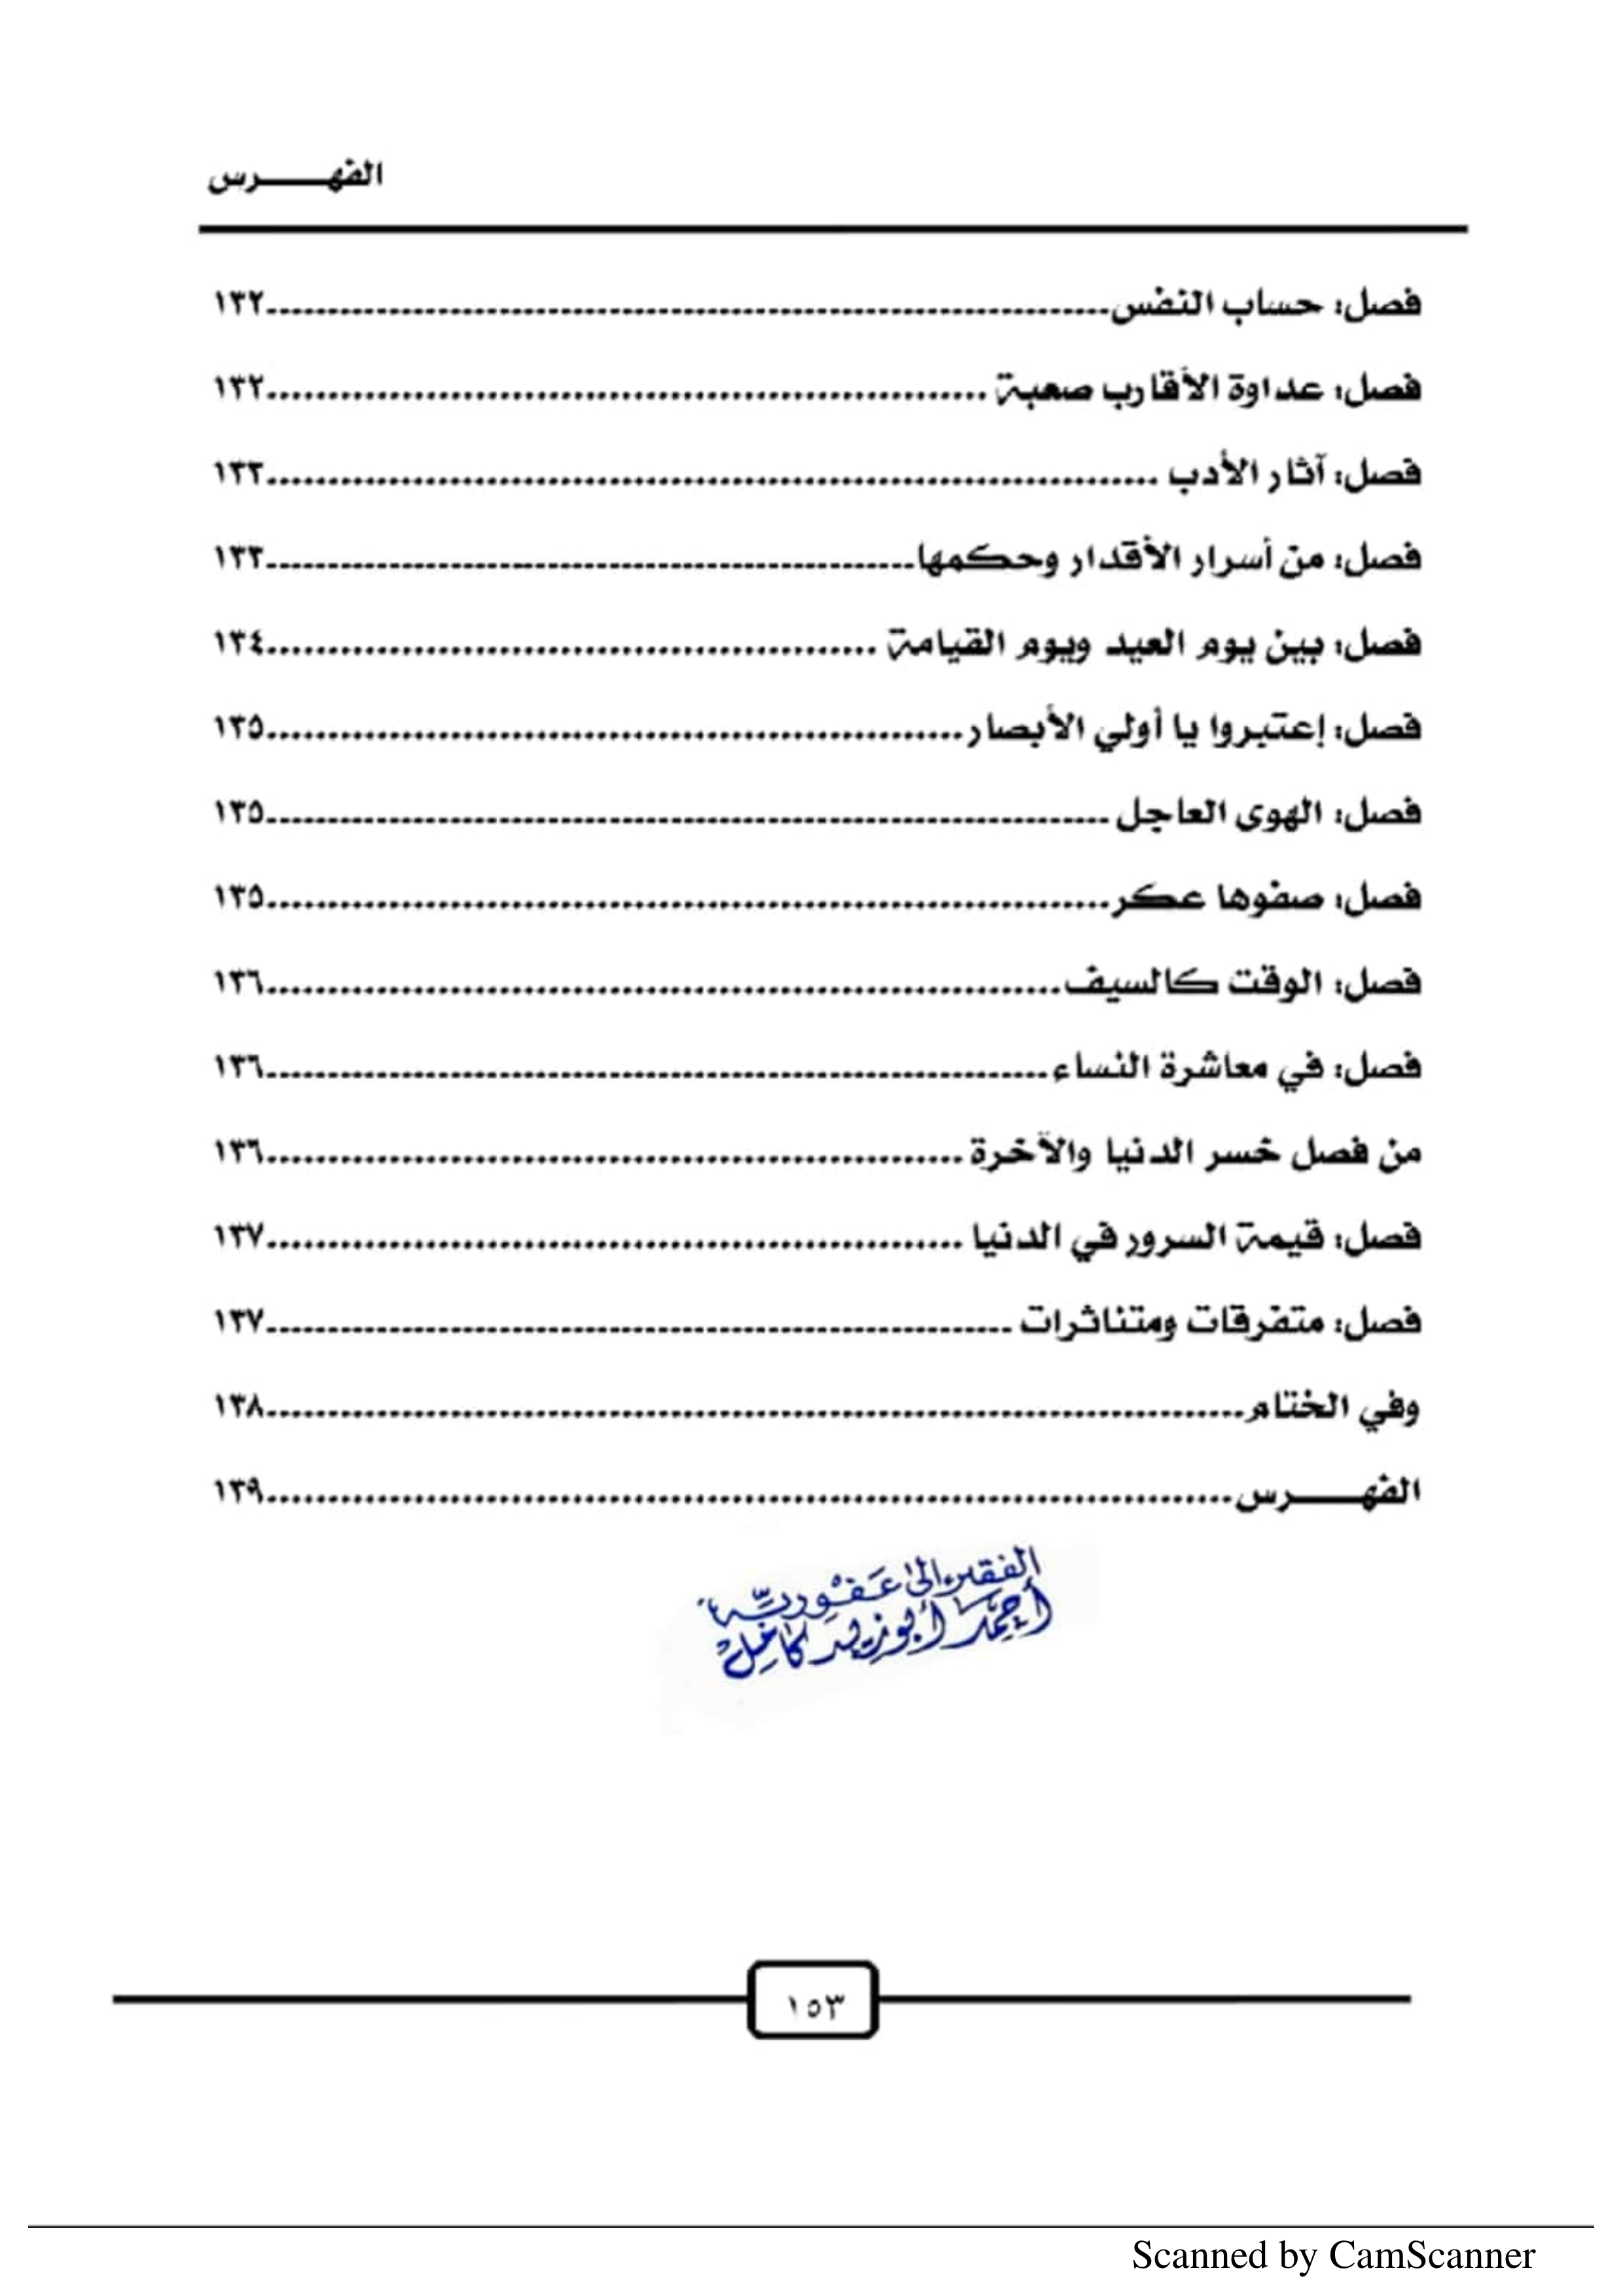 الفهـــــرس
فصل: حساب النفس..........١٣٢
فصل: عداوة الأقارب صعبة..........١٣٢
فصل: آثار الأدب..........١٣٣
فصل: من أسرار الأقدار وحكمها..........١٣٣
فصل: بين يوم العيد ويوم القيامة..........١٣٤
فصل: إعتبروا يا أولي الأبصار..........١٣٥
فصل: الهوى العاجل..........١٣٥
فصل: صفوها عكر..........١٣٥
فصل: الوقت كالسيف..........١٣٦
فصل: في معاشرة النساء..........١٣٦
من فصل خسر الدنيا والآخرة..........١٣٦
فصل: قيمة السرور في الدنيا..........١٣٧
فصل: متفرقات ومتناثرات..........١٣٧
وفي الختام..........١٣٨
الفهـــــرس..........١٣٩
الفقير إلى عَفْوِ ربِّه
أحمد أبوزيد كامل
١٥٣
Scanned by CamScanner